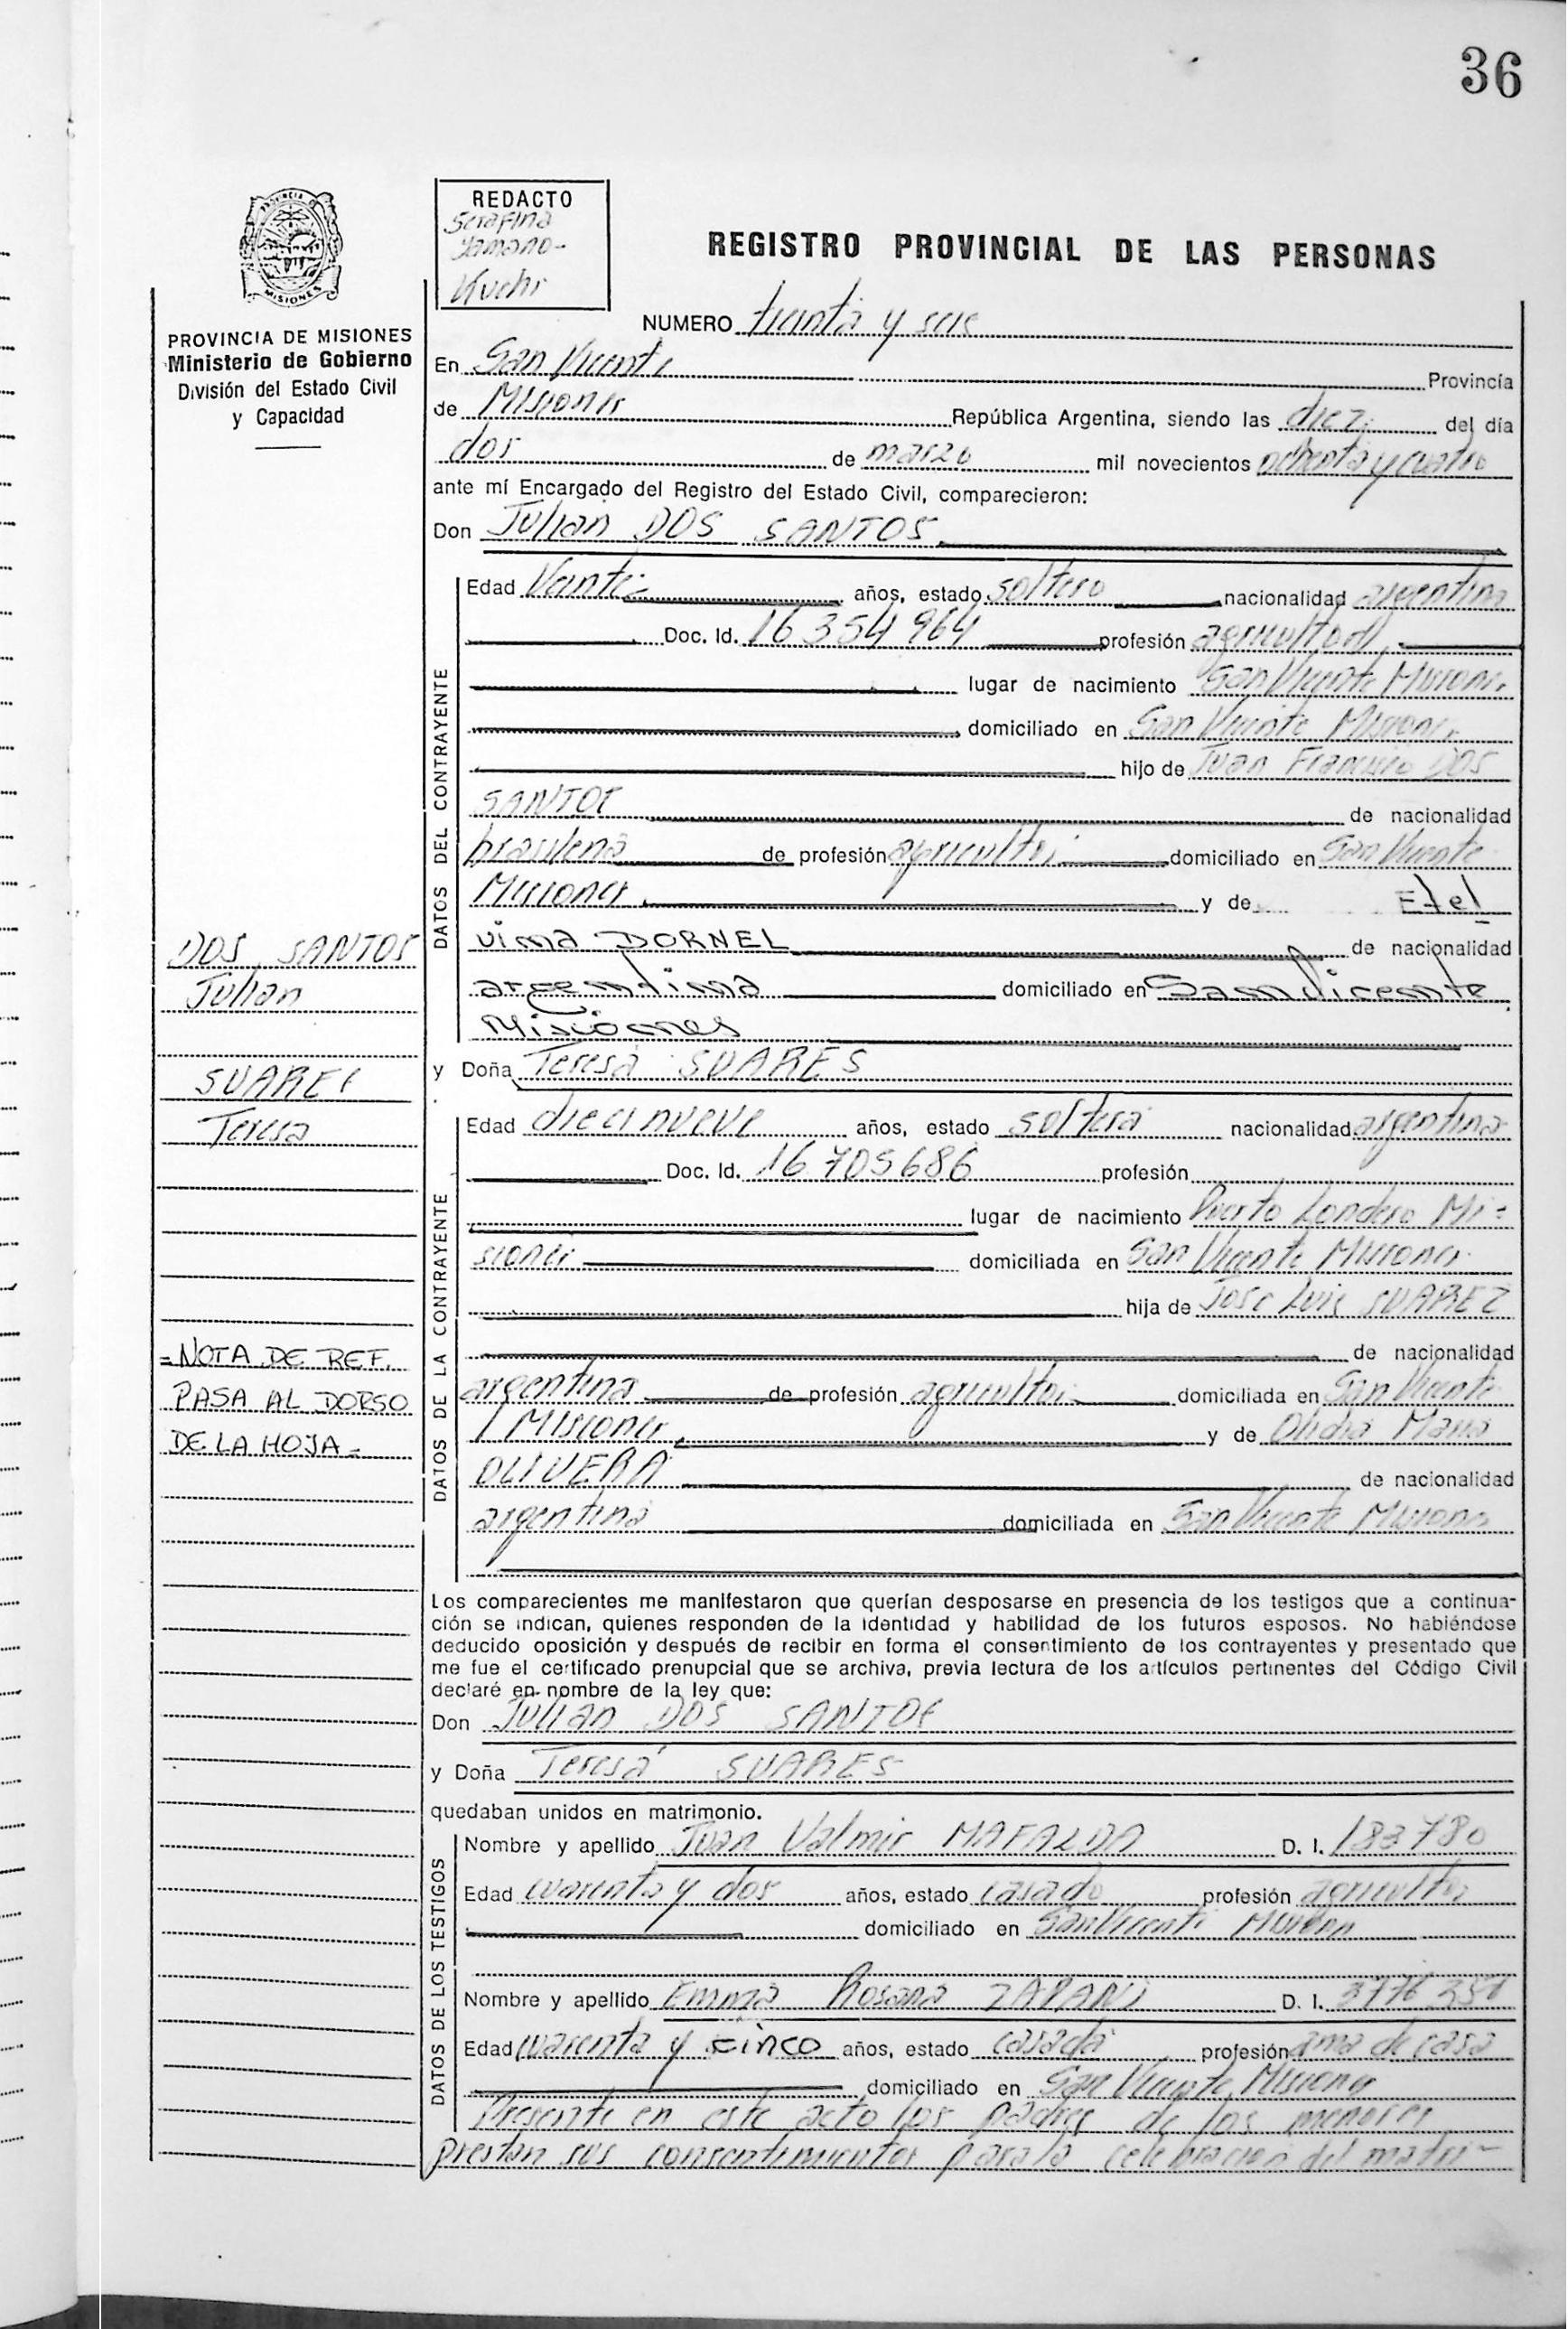 36
REDACTO
Serafina
Kuehr
PROVINCIA
MISIONES
REGISTRO PROVINCIAL DE LAS PERSONAS
PROVINCIA DE MISIONES
Ministerio de Gobierno
División del Estado Civil
y Capacidad
NUMERO treinta y seis
En San Vicente Provincia
de Misiones República Argentina, siendo las diez del día
dos de marzo mil novecientos ochenta y cuatro
ante mí Encargado del Registro del Estado Civil, comparecieron:
Don Julian DOS SANTOS
DATOS DEL CONTRAYENTE
Edad Veinte años, estado soltero nacionalidad argentina
Doc. Id. 16 354 964 profesión agricultor
lugar de nacimiento San Vicente Misiones
domiciliado en San Vicente Misiones
hijo de Juan Francisco DOS
SANTOS de nacionalidad
brasilena de profesión agricultor domiciliado en San Vicente
Misiones y de Etel
vina DORNEL de nacionalidad
argentina domiciliado en San Vicente
Misiones
DOS SANTOS
Julian
SUARES
Teresa
y Doña Teresa SUARES
DATOS DE LA CONTRAYENTE
Edad diecinueve años, estado soltera nacionalidad argentina
Doc. Id. 16 705686 profesión
lugar de nacimiento Puerto Londero Mi=
siones domiciliada en San Vicente Misiones
hija de Jose Luis SUAREZ
de nacionalidad
argentina de profesión agricultor domiciliada en San Vicente
Misiones y de Maria
OLIVERA de nacionalidad
argentina domiciliada en San Vicente Misiones
=NOTA DE REF.
PASA AL DORSO
DE LA HOJA=
Los comparecientes me manifestaron que querían desposarse en presencia de los testigos que a continua-
ción se indican, quienes responden de la identidad y habilidad de los futuros esposos. No habiéndose
deducido oposición y después de recibir en forma el consentimiento de los contrayentes y presentado que
me fue el certificado prenupcial que se archiva, previa lectura de los artículos pertinentes del Código Civil
declaré en nombre de la ley que:
Don Julian DOS SANTOS
y Doña Teresa SUARES
quedaban unidos en matrimonio.
DATOS DE LOS TESTIGOS
Nombre y apellido Juan Valmir MAFALDA D. I. 183780
Edad cuarenta y dos años, estado casado profesión agricultor
domiciliado en San Vicente Misiones
Nombre y apellido Emma Rosana D. I.
Edad cuarenta y cinco años, estado casada profesión ama de casa
domiciliado en San Vicente Misiones
Presente en este acto los padres de los menores
prestan sus consentimientos para la celebracion del matri-